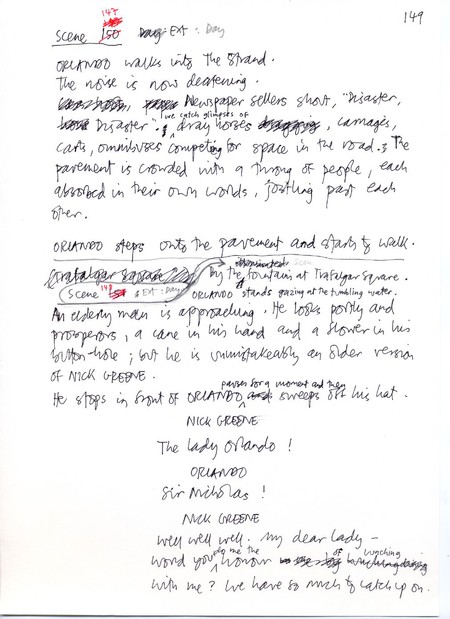 149
147
Scene 150 Day EXT : Day
ORLANDO walks into the Strand.
The noise is now deafening.
Newspaper sellers shout, "Disaster,
Disaster". & we catch glimpses of dray horses, carriages,
carts, omnibuses competing for space in the road. & The
pavement is crowded with a throng of people, each
absorbed in their own words, jostling past each
other.
ORLANDO steps onto the pavement and starts to walk.
Trafalgar Square by the fountain at Trafalgar Square.
Scene 148 EXT : Day ORLANDO stands gazing at the tumbling water.
An elderly man is approaching. He looks portly and
prosperous, a cane in his hand and a flower in his
button-hole; but he is unmistakeably an older version
of NICK GREENE.
pauses for a moment and then
He stops in front of ORLANDO and sweeps off his hat.
NICK GREENE
The lady Orlando!
ORLANDO
Sir Nicholas!
NICK GREENE
Well well well. My dear lady –
would you do me the honour of lunching
with me? We have so much to catch up on.